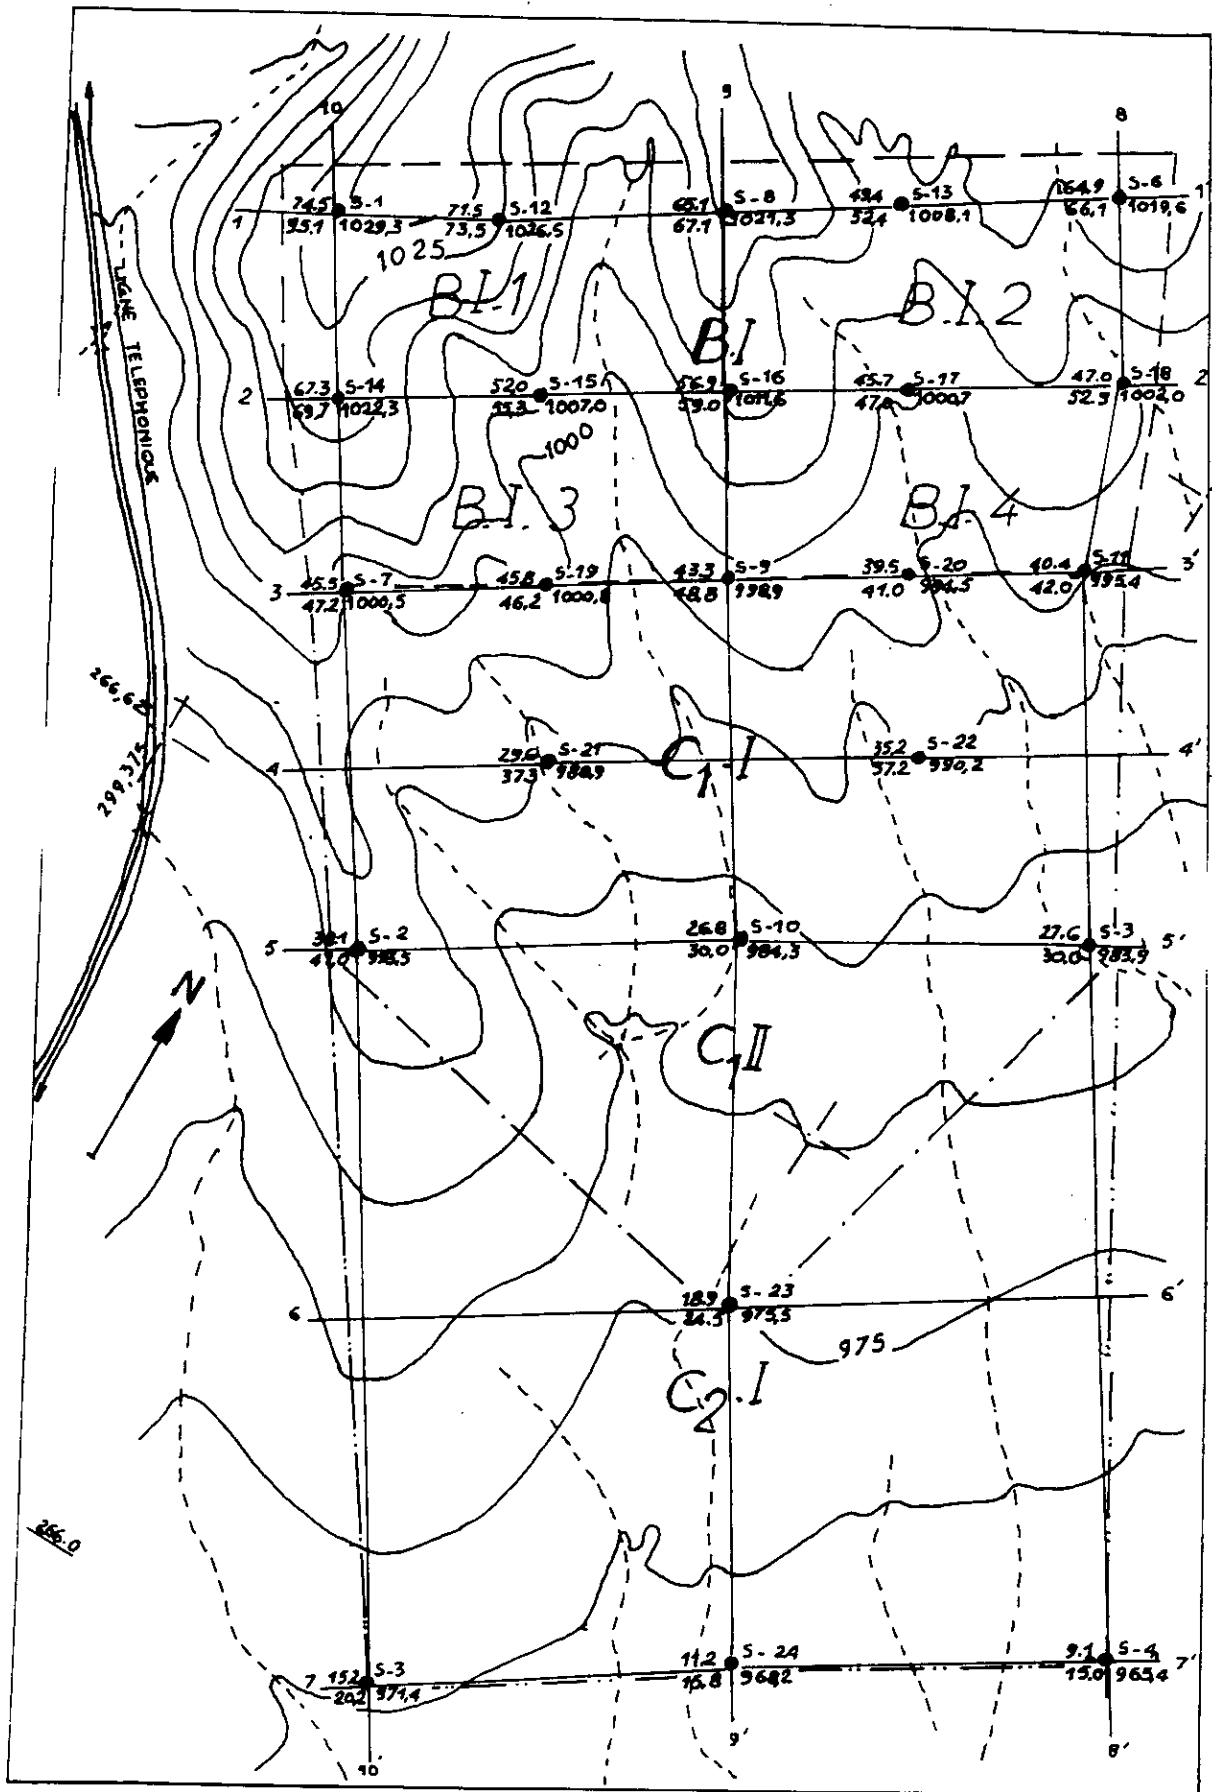 10
9
8
74.5 S-1
95.1 1029,3
71.5 S-12
73,5 1026,5
65.1 S-8
67.1 1021,3
49.4 S-13
52,4 1008,1
64.9 S-6
66,1 1019,6
1
1'
1025
B.I.1
B.I.2
B.I
LIGNE TELEPHONIQUE
67.3 S-14
69,7 1022,3
52.0 S-15
1007,0
56.9 S-16
59.0
45.7 S-17
1000,7
47.0 S-18
52.9 1002,0
2
2'
1000
B.I.3
B.I.4
45.5 S-7
47.2 1000,5
45.8 S-19
46,2 1000,8
43.3 S-9
48.8 998,9
39.5 S-20
41.0 994,5
40.4 S-11
42.0 995.4
3
3'
266,62
299,375
29.6 S-21
37.3
35.2 S-22
37.2 990,2
4
4'
C1-I
S-2
26.8 S-10
30.0 984,3
27.6 S-3
30,0 983,9
5
5'
N
C1II
18.9 S-23
24.5 975,5
6
6'
975
C2.I
266.0
15.2 S-3
20,2 971,4
11.2 S-24
16.8 968,2
9.1 S-4
15.0 965,4
7
7'
10'
9'
8'